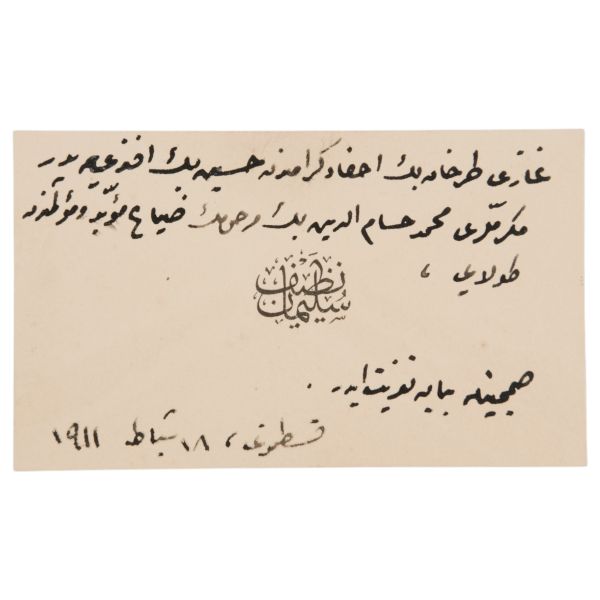 غازی طرخان بك احفاد کرامندن حسین بك افندی یه پدر
مکرملری محمد حسام الدین بك مرحومك ضیاع مؤبد و مؤلمندن
طولایی ،
سلیمان نظیف
صمیمیتله بیان تعزیت ایدر .
قسطمونی ، ١٨ شباط ١٩١١